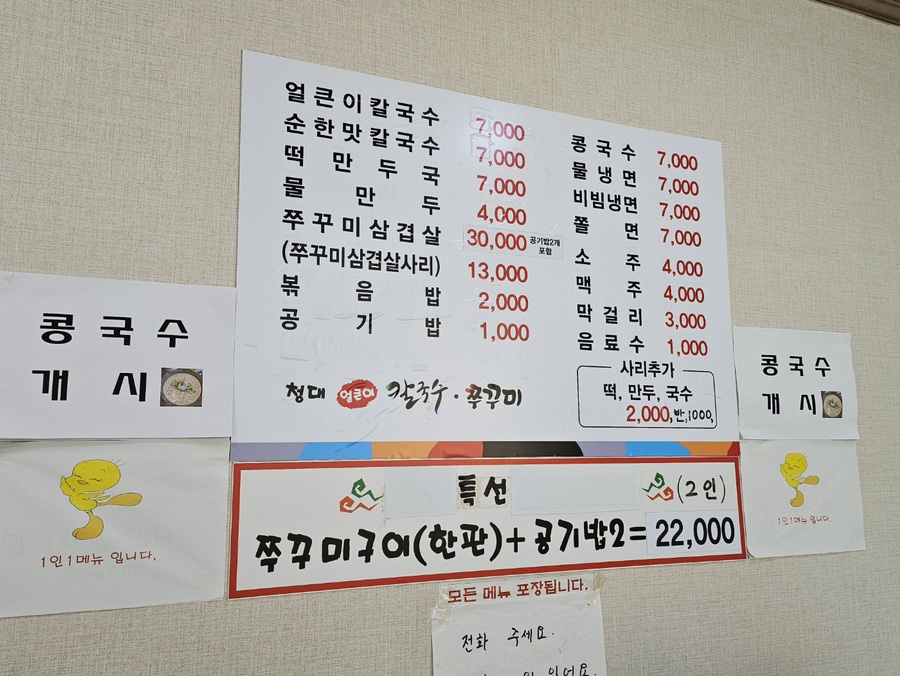 얼큰이칼국수 7,000
순한맛칼국수 7,000
떡만두국 7,000
물만두 4,000
쭈꾸미삼겹살 30,000 공기밥2개 포함
(쭈꾸미삼겹살사리) 13,000
볶음밥 2,000
공기밥 1,000
청대 얼큰이 칼국수·쭈꾸미
콩국수 7,000
물냉면 7,000
비빔냉면 7,000
쫄면 7,000
소주 4,000
맥주 4,000
막걸리 3,000
음료수 1,000
사리추가
떡, 만두, 국수
2,000, 반,1000,
콩국수
개시
1인1메뉴 입니다.
특선 (2인)
쭈꾸미구이(한판)+공기밥2=22,000
콩국수
개시
1인1메뉴 입니다.
모든 메뉴 포장됩니다.
전화 주세요.
있어요.